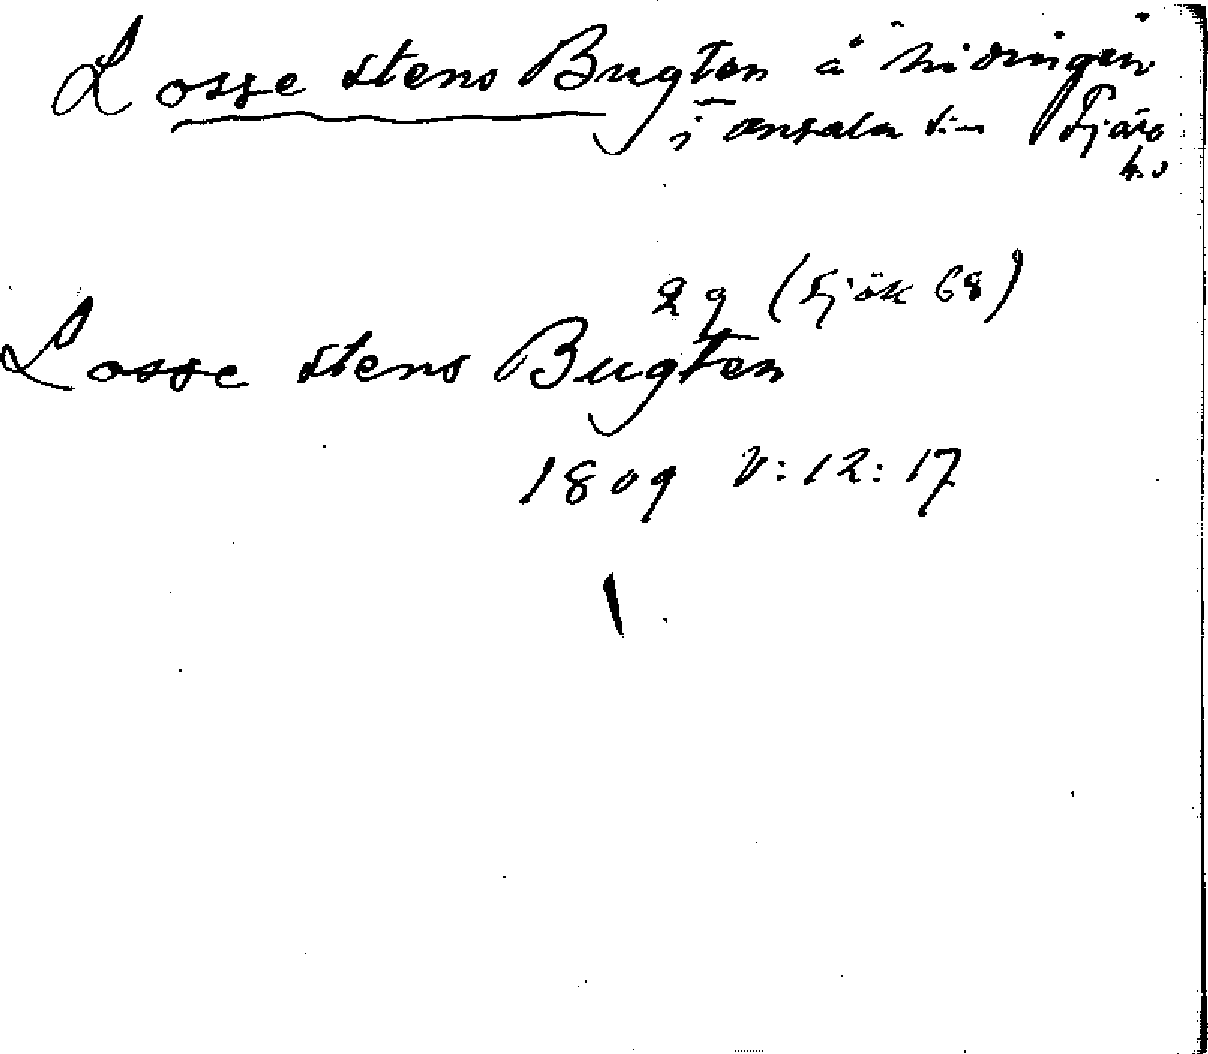 Losse stens Bugten å Nidingen
i Onsala sn Fjäre
hd
29 (Sjök 68)
Losse stens Bugten
1809 V:12:17